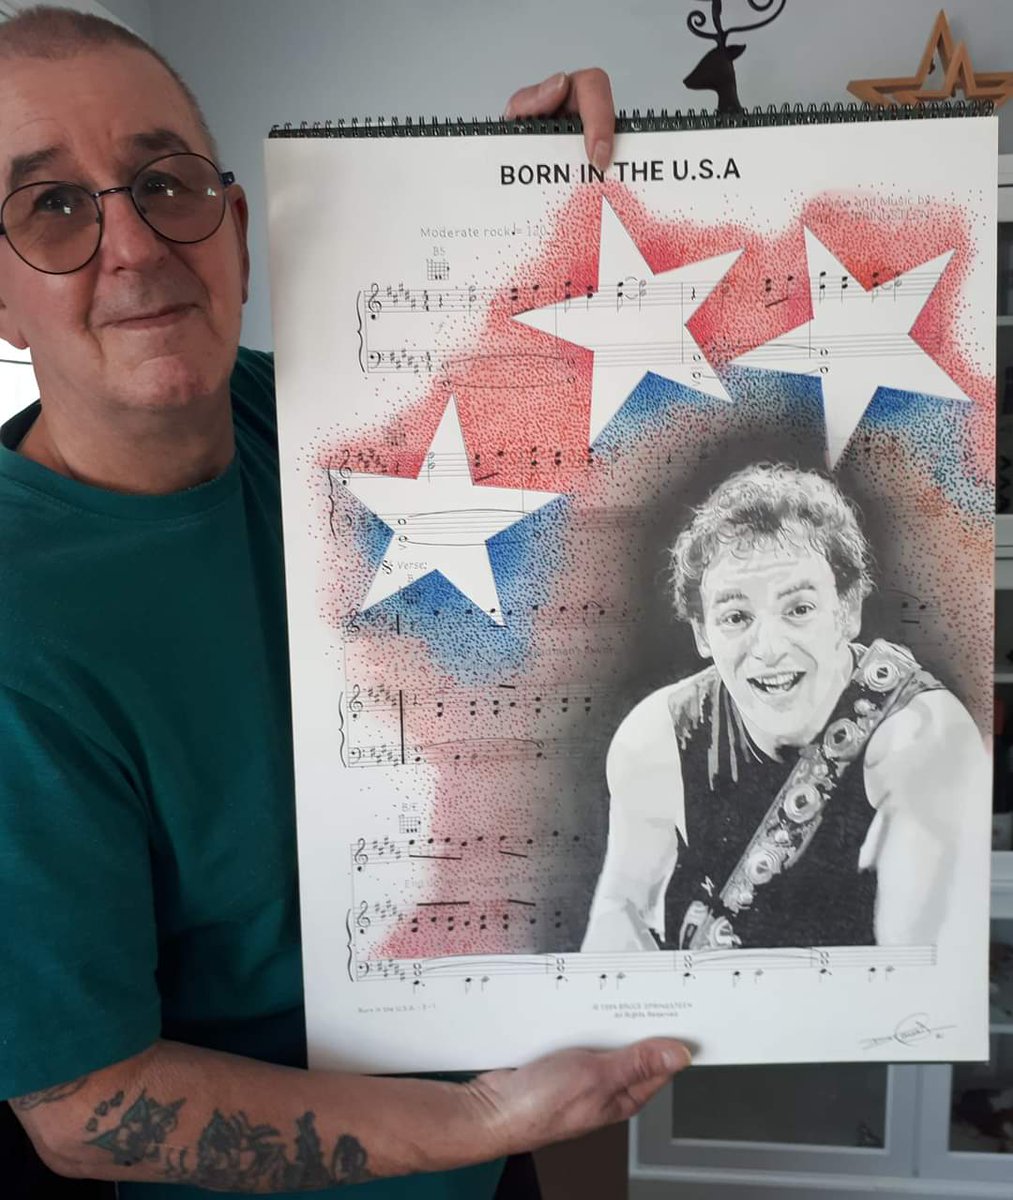 BORN IN THE U.S.A
and Music by
SPRINGSTEEN
Moderate rock ♩= 120
B5
Verse:
B/E
Born in the U.S.A. - 3 - 1
© 1984 BRUCE SPRINGSTEEN
All Rights Reserved